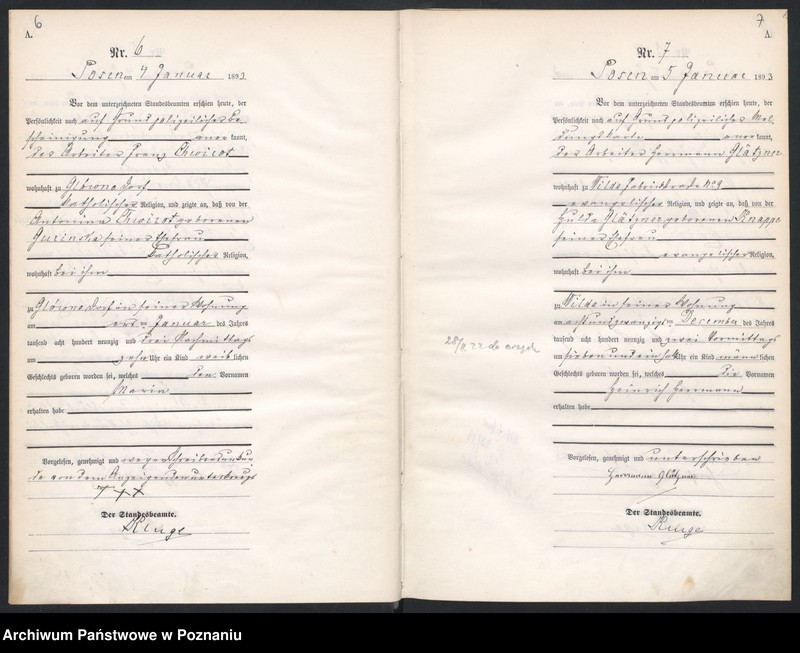 6
A.
Nr. 6
Posen am 4 Januar 1893
Vor dem unterzeichneten Standesbeamten erschien heute, der
Persönlichkeit nach auf Grund polizeilicher Be
scheinigung anerkannt,
der Arbeiter Franz
wohnhaft zu Glówno Dorf
katholischer Religion, und zeigte an, daß von der
Antonina geborenen
seiner Ehefrau
katholischer Religion,
wohnhaft bei ihm
zu Glówno Dorf in seiner Wohnung
am ersten Januar des Jahres
tausend acht hundert neunzig und drei Nachmittags
um zehn Uhr ein Kind weiblichen
Geschlechts geboren worden sei, welches den Vornamen
Maria
erhalten habe
Vorgelesen, genehmigt und wegen Schreibensunkun
de von dem Anzeigenden unterkreuzt
+++
Der Standesbeamte.
7
A.
Nr. 7
Posen am 5 Januar 1893
Vor dem unterzeichneten Standesbeamten erschien heute, der
Persönlichkeit nach auf Grund polizeilicher Mel
dungskarte anerkannt,
der Arbeiter Herrmann Glätzner
wohnhaft zu Wilda Fabrikstraße No 9
evangelischer Religion, und zeigte an, daß von der
Hulda Glätzner geborenen Knappe
seiner Ehefrau
evangelischer Religion,
wohnhaft bei ihm
zu Wilda in seiner Wohnung
am achtundzwanzigsten December des Jahres
tausend acht hundert neunzig und zwei Vormittags
um sieben und ein halb Uhr ein Kind männlichen
Geschlechts geboren worden sei, welches die Vornamen
Heinrich Herrmann
erhalten habe
Vorgelesen, genehmigt und unterschrieben
Herrmann Glätzner
Der Standesbeamte.
Archiwum Państwowe w Poznaniu